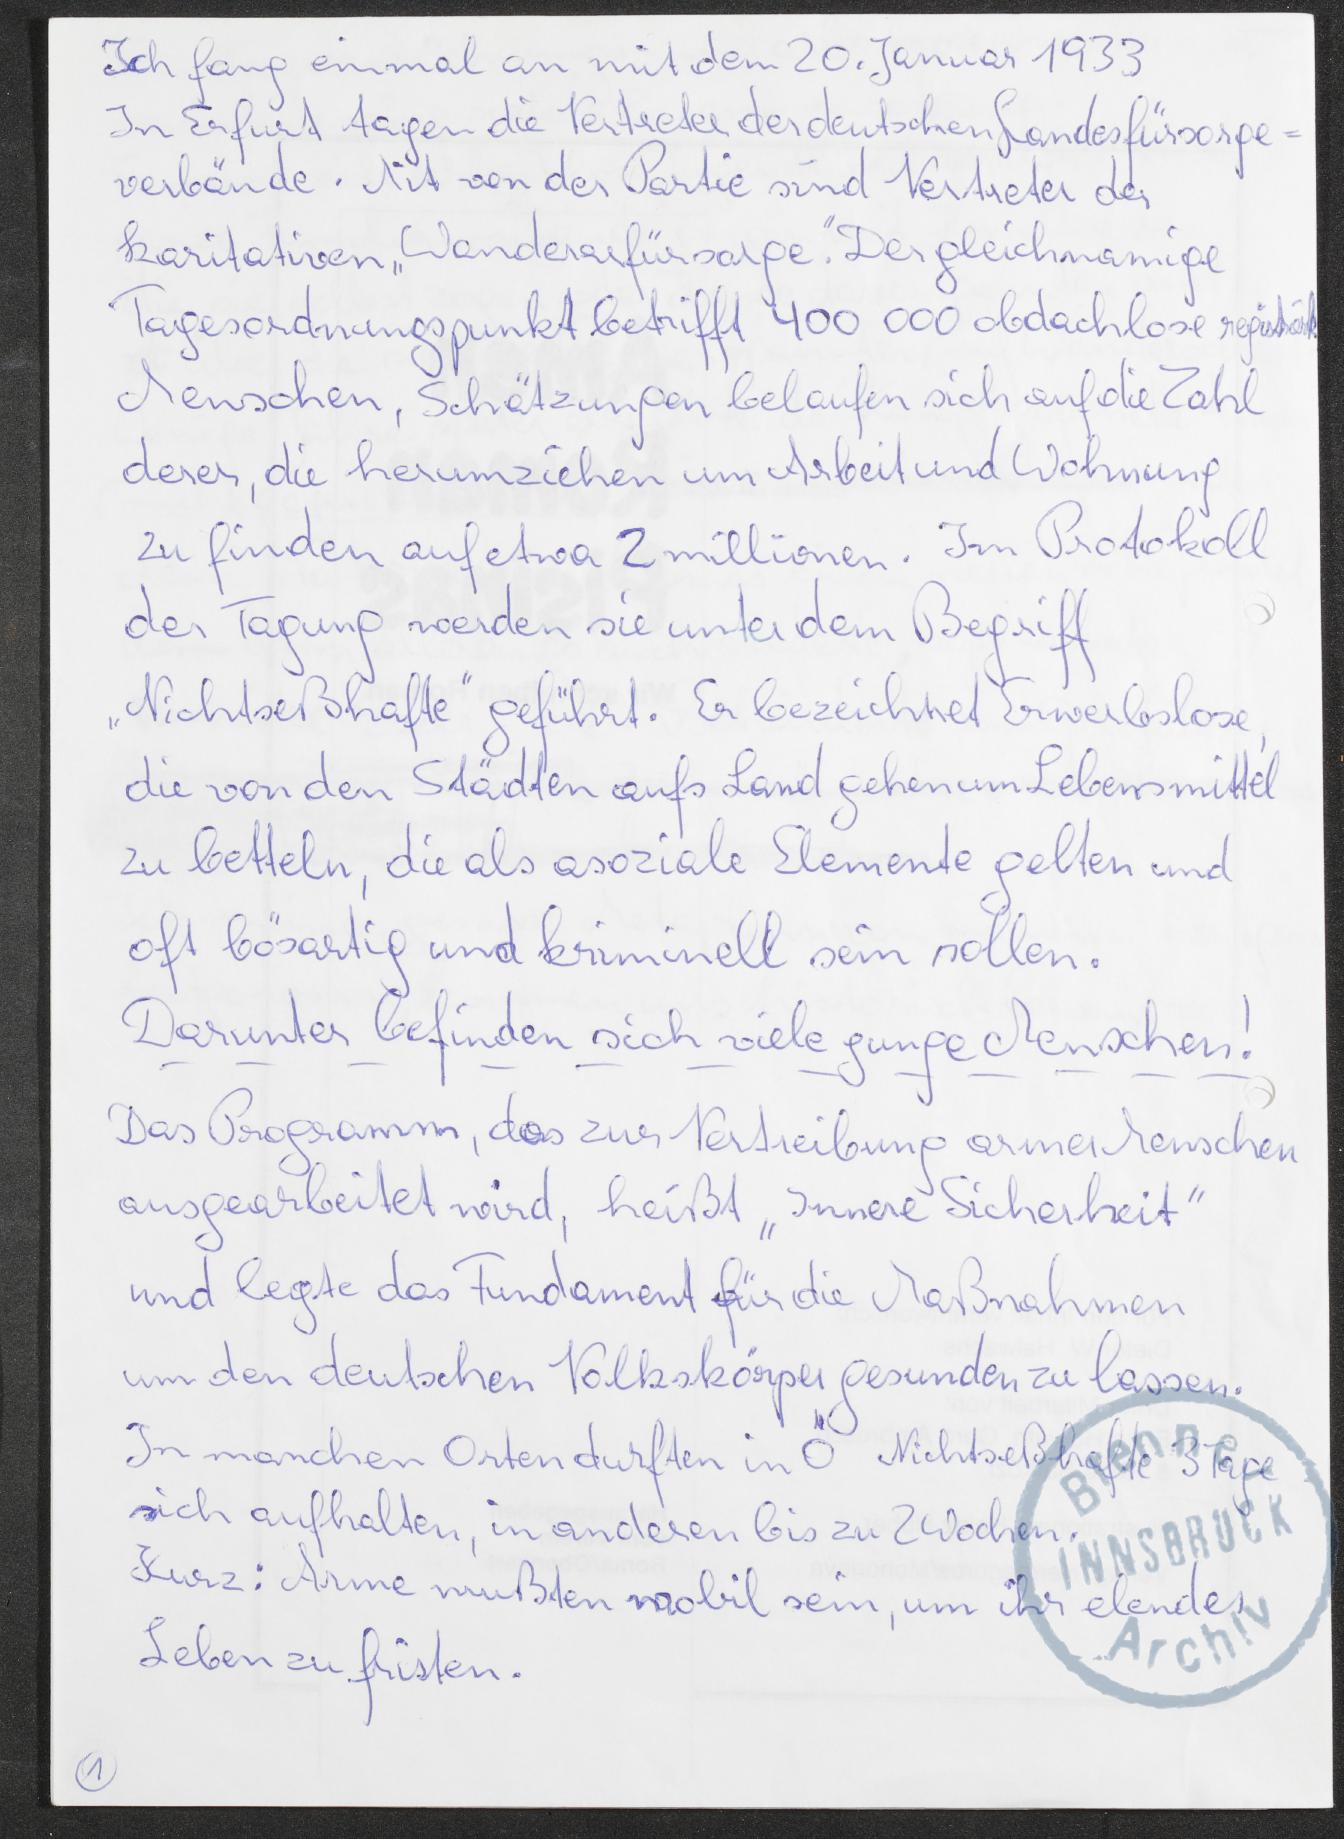 Ich fang einmal an mit dem 20. Januar 1933
In Erfurt tagen die Vertreter der deutschen Landesfürsorge=
verbände. Mit von der Partie sind Vertreter der
karitativen „Wandererfürsorge“. Der gleichnamige
Tagesordnungspunkt betrifft 400 000 obdachlose
Menschen, Schätzungen belaufen sich auf die Zahl
derer, die herumziehen um Arbeit und Wohnung
zu finden auf etwa 2 millionen. Im Protokoll
der Tagung werden sie unter dem Begriff
„Nichtseßhafte“ geführt. Er bezeichnet Erwerbslose,
die von den Städten aufs Land gehen um Lebensmittel
zu betteln, die als asoziale Elemente gelten und
oft bösartig und kriminell sein sollen.
Darunter befinden sich viele junge Menschen!
Das Programm, das zur Vertreibung armer Menschen
ausgearbeitet wird, heißt „Innere Sicherheit“
und legte das Fundament für die Maßnahmen
um den deutschen Volkskörper gesunden zu lassen.
In manchen Orten durften in Ö Nichtseßhafte 3 Tage
sich aufhalten, in anderen bis zu 2 Wochen.
Kurz: Arme mußten mobil sein, um ihr elendes
Leben zu fristen.
Brenner
INNSBRUCK
Archiv
1